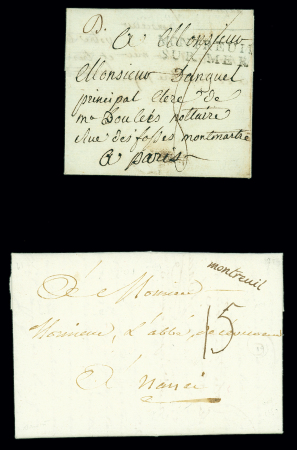 B.
A Monsieur
MONTREUIL
SUR-MER
Monsieur Danquel
principal Clerc de
me Doulées nottaire
Rue des fosses montmartre
A paris
montreuil
A Monsieur
15
Monsieur L'abbé
A Nanci